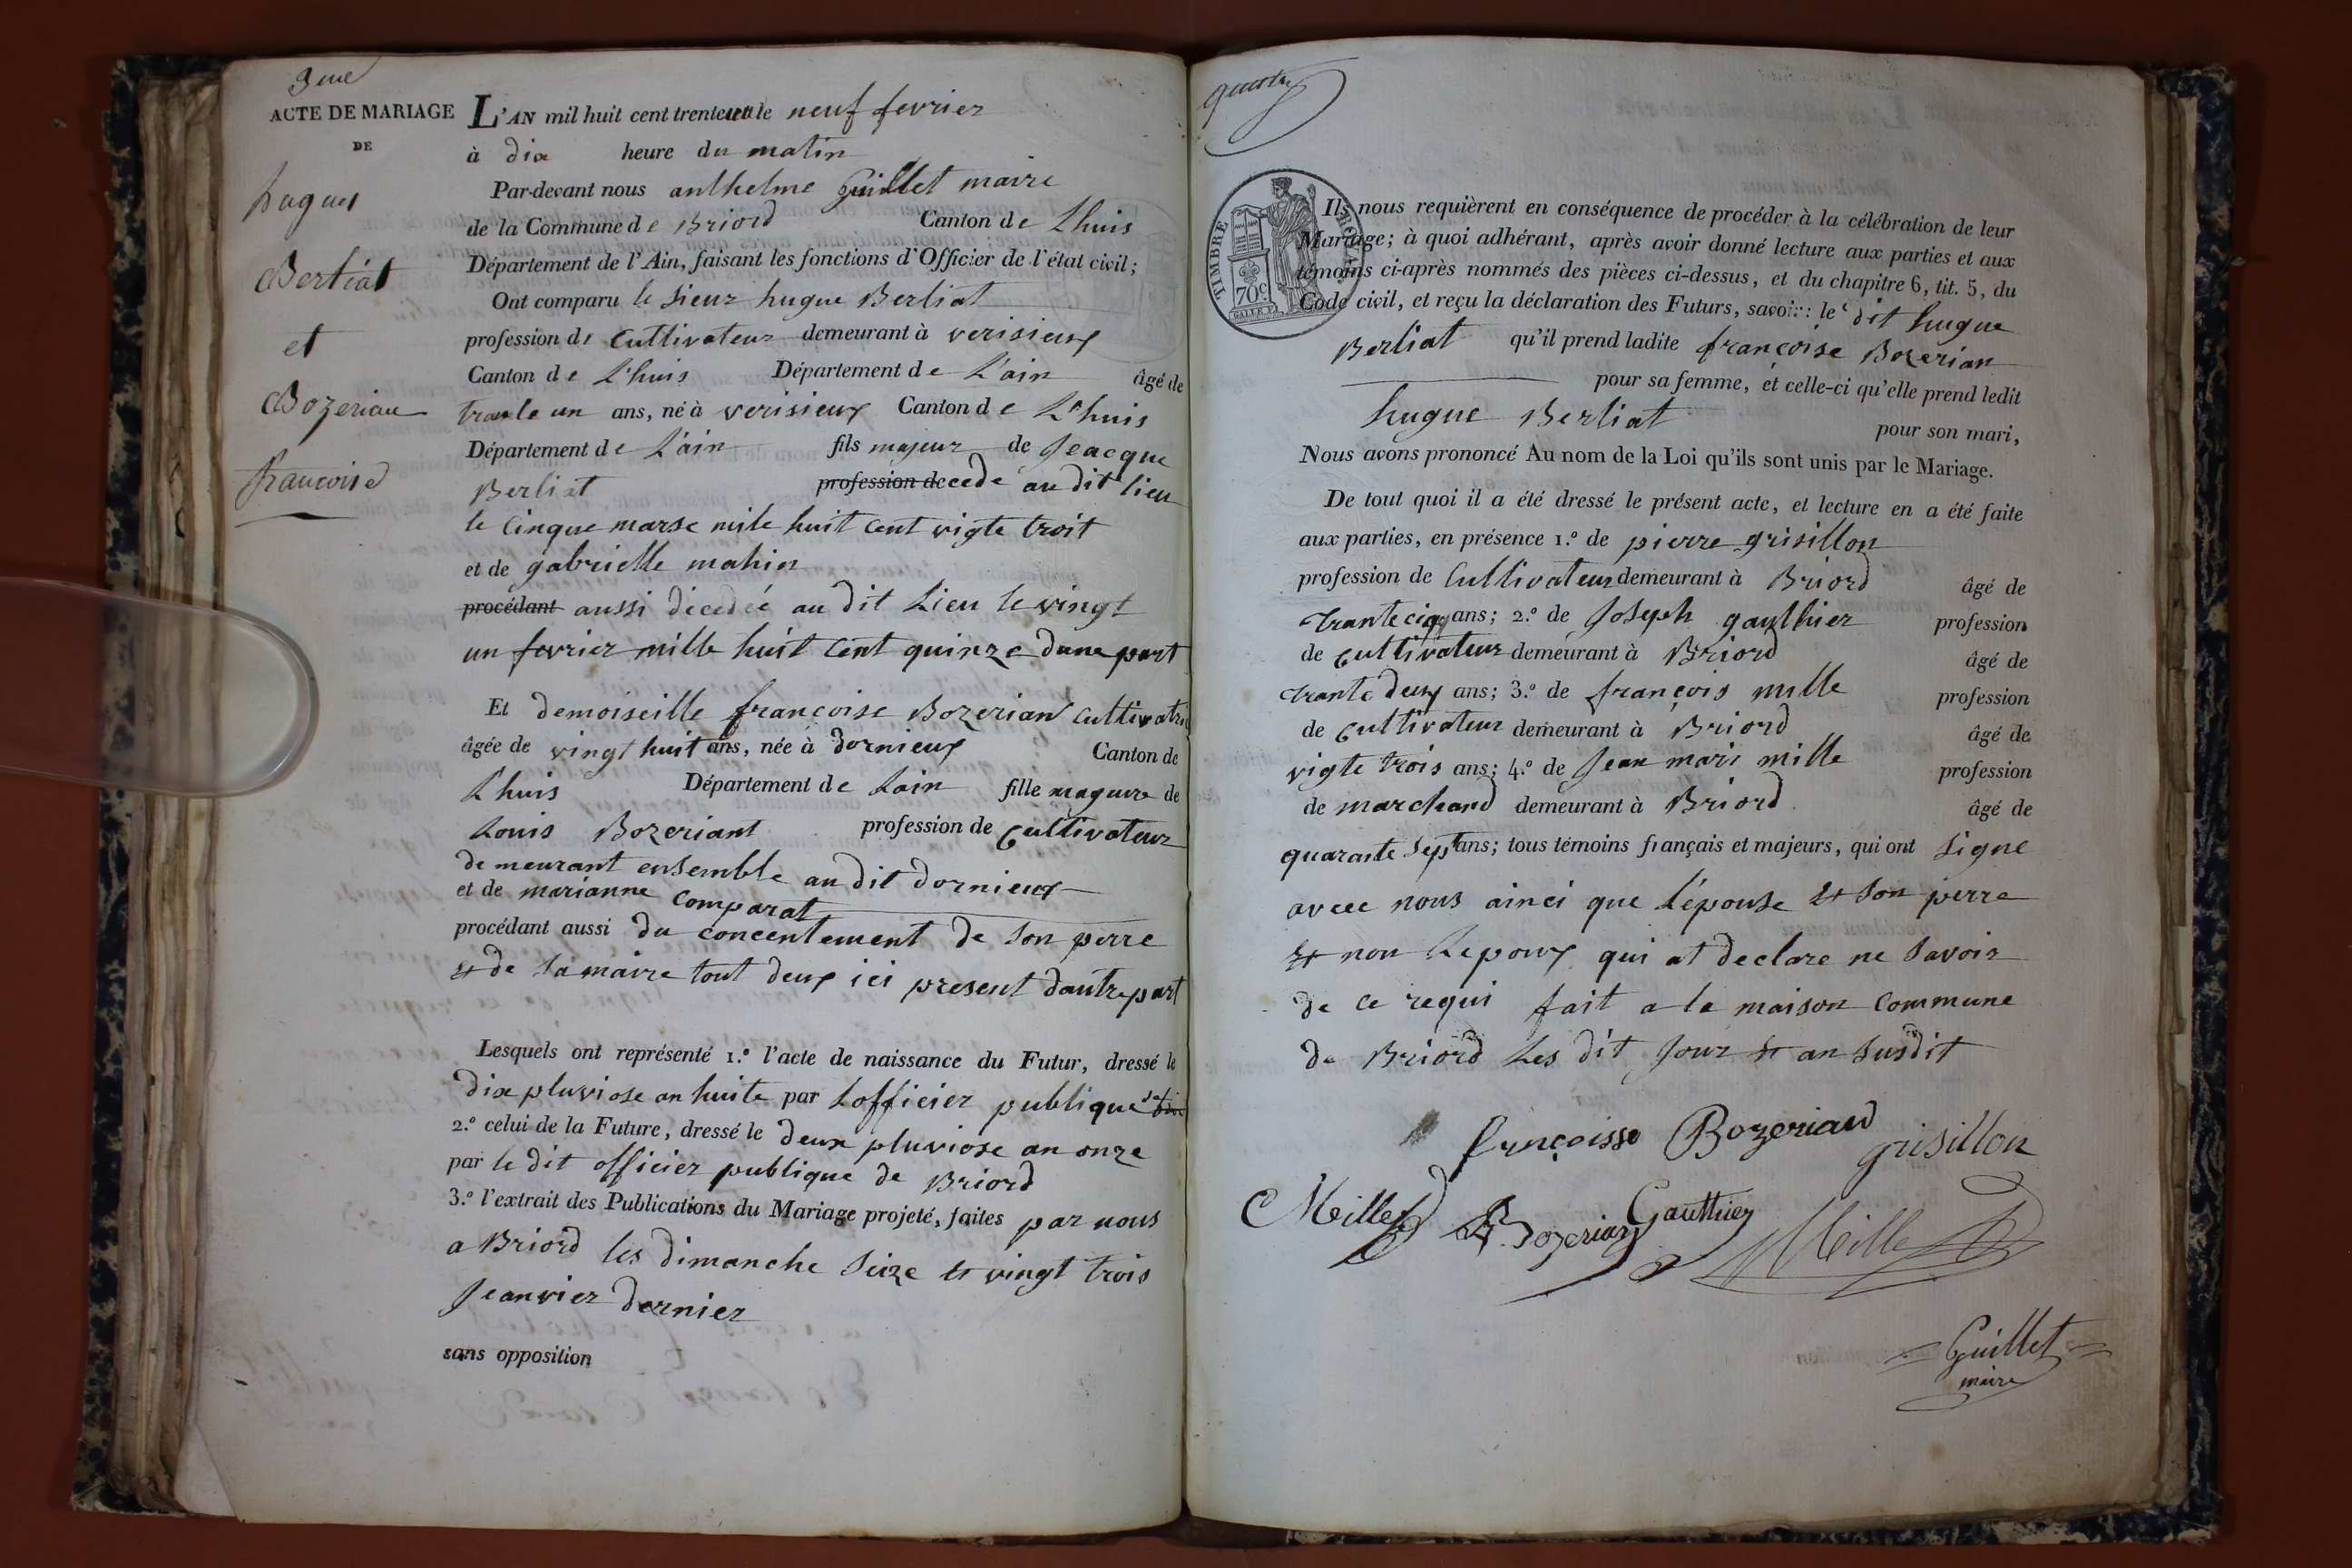 3eme
ACTE DE MARIAGE
DE
hugues
Berliat
et
Bozerian
francoise
L'AN mil huit cent trente un le neuf fevrier
à dix heure du matin
Par-devant nous anthelme Guillet maire
de la Commune de Briord Canton de Lhuis
Département de l'Ain, faisant les fonctions d'Officier de l'état civil;
Ont comparu le sieur hugue Berliat
profession de cultivateur demeurant à verisieux
Canton de L'huis Département de L'ain âgé de
trante un ans, né à verisieux Canton de L'huis
Département de L'ain fils majeur de Jeacque
Berliat profession de cedé au dit lieu
le cinque marse mile huit cent vigte troit
et de gabrielle mahin
procédant aussi décedéé au dit Lieu le vingt
un fevrier mille huit cent quinze dune part
Et demoiseille françoise Bozerian cultivatri
âgée de vingt huit ans, née à dornieux Canton de
L'huis Département de Lain fille magure de
Louis Bozeriant profession de cultivateur
demeurant ensemble au dit dornieux
et de marianne comparat
procédant aussi du concentement de son perre
et de sa maire tout deux ici present dautre part
Lesquels ont représenté 1.º l'acte de naissance du Futur, dressé le
dix pluviose an huite par Lofficier publique
2.º celui de la Future, dressé le deux pluviose an onze
par le dit officier publique de Briord
3.º l'extrait des Publications du Mariage projeté, faites par nous
a Briord les dimanche seize et vingt trois
Jeanvier dernier
sans opposition
quatre
TIMBRE ROYAL
70c
Ils nous requièrent en conséquence de procéder à la célébration de leur
Mariage; à quoi adhérant, après avoir donné lecture aux parties et aux
témoins ci-après nommés des pièces ci-dessus, et du chapitre 6, tit. 5, du
Code civil, et reçu la déclaration des Futurs, savoir: le dit hugue
Berliat qu'il prend ladite françoise Bozerian
pour sa femme, et celle-ci qu'elle prend ledit
hugue Berliat pour son mari,
Nous avons prononcé Au nom de la Loi qu'ils sont unis par le Mariage.
De tout quoi il a été dressé le présent acte, et lecture en a été faite
aux parties, en présence 1.º de pierre grisillon
profession de Cultivateur demeurant à Briord âgé de
trante ciq ans; 2.º de Joseph gaulhier profession
de cultivateur demeurant à Briord âgé de
trante deux ans; 3.º de françois mille profession
de cultivateur demeurant à Briord âgé de
vigte trois ans; 4.º de Jean mari mille profession
de marchand demeurant à Briord âgé de
quarante sept ans; tous témoins français et majeurs, qui ont signe
avece nous ainci que L'épouse et son perre
et non Lepoux qui at declare ne savoir
de ce requi fait a la maison commune
de Briord Les dit Jour et an susdit
françoisse Bozerian
grisillon
Meille
Bozerian
Gauthier
Mille
Guillet
maire